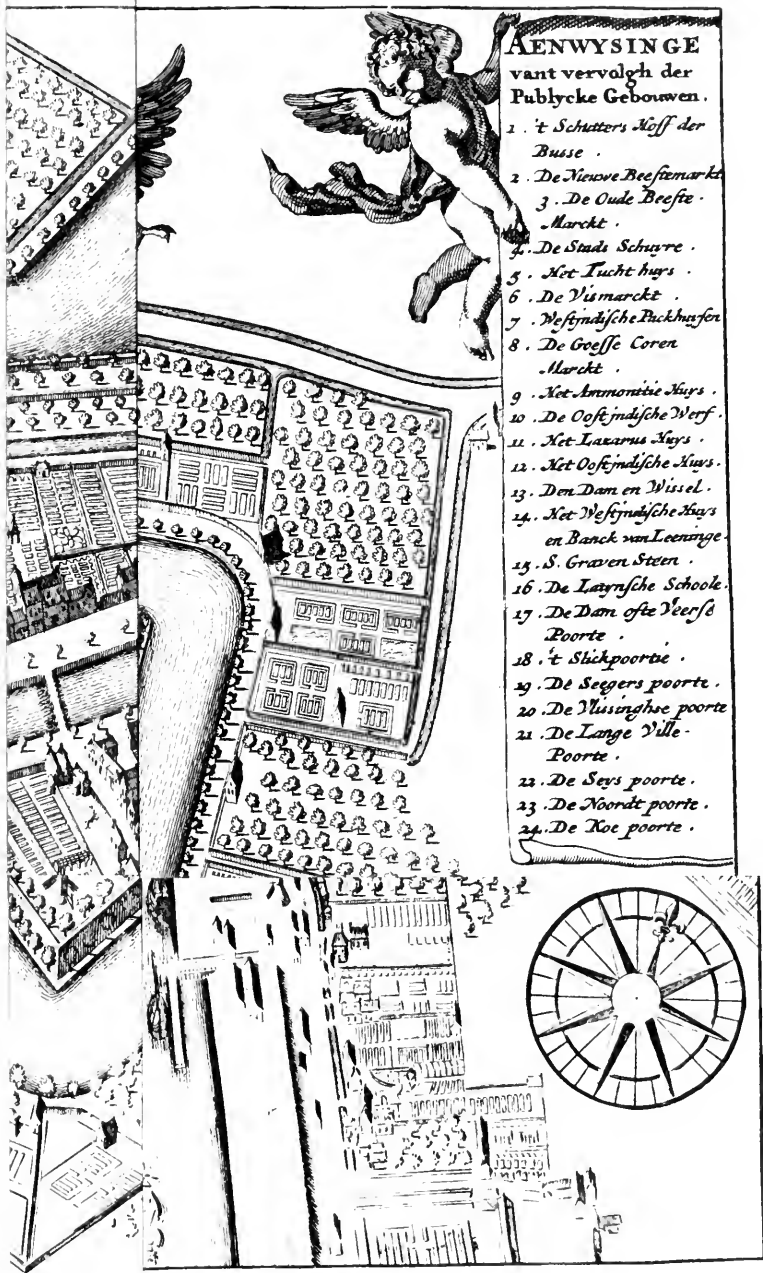 AENWYSINGE
vant vervolgh der
Publycke Gebouwen.
1. 't Schutters Hoff der
Busse.
2. De Nieuwe Beestemarkt
3. De Oude Beeste-
Marckt.
4. De Stads Schuyre.
5. Het Tucht huys.
6. De Vismarckt.
7. Westjndische Packhuysen
8. De Goesse Coren
Marckt.
9. Het Ammonitie Huys.
10. De Oostjndische Werf.
11. Het Lazarus Huys.
12. Het Oostjndische Huys.
13. Den Dam en Wissel.
14. Het Westjndische Huys
en Banck van Leeninge.
15. S. Graven Steen.
16. De Latynsche Schoole.
17. De Dam ofte Veerse
Poorte.
18. 't Slickpoortie.
19. De Seegers poorte.
20. De Vlissinghse poorte
21. De Lange Ville-
Poorte.
22. De Seys poorte.
23. De Noordt poorte.
24. De Koe poorte.